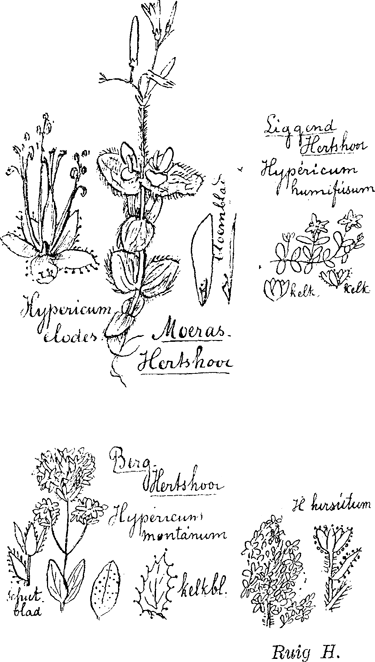 Liggend
Hertshooi
Hypéricum
humifúsum
bloemblad
kelk.
kelk
Hypericum
elodes.
Moeras-
Hertshooi
Berg-
Hertshooi
Hypéricum
montánum
schut
blad
kelkbl.
H hirsútum
Ruig H.